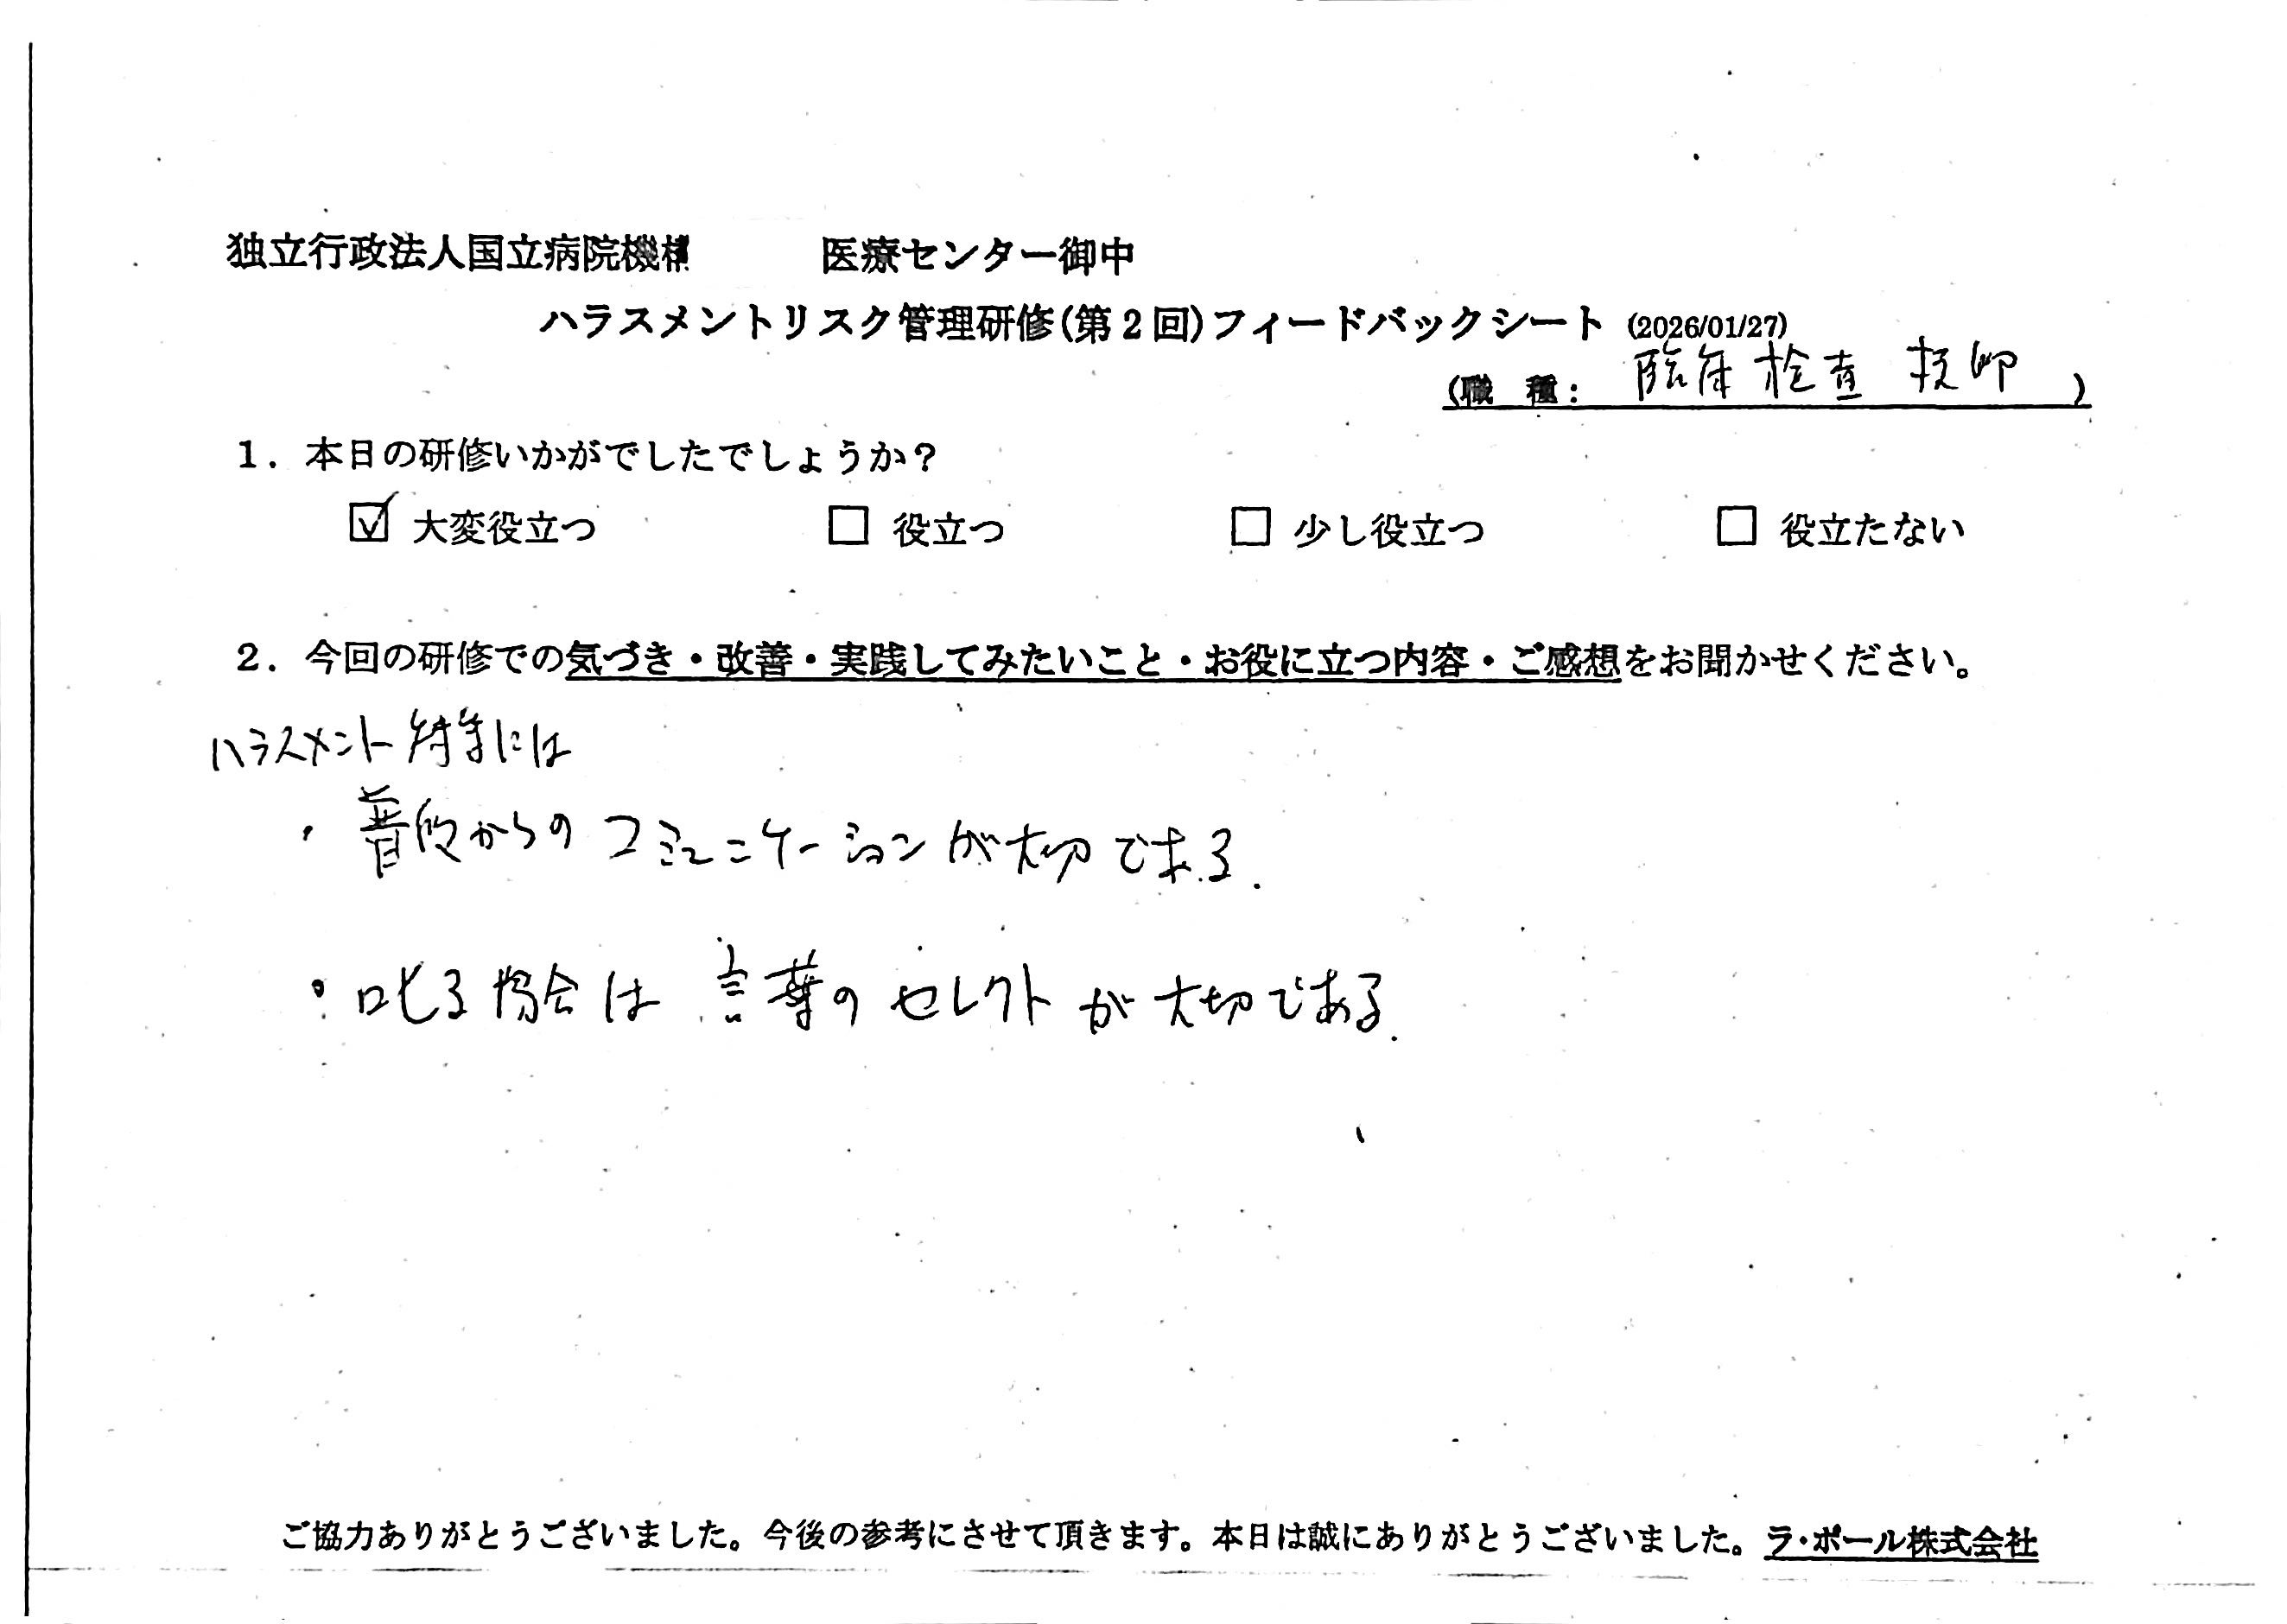 独立行政法人国立病院機構 医療センター御中
ハラスメントリスク管理研修(第2回)フィードバックシート (2026/01/27)
(職 種: 臨床検査技師 )
1. 本日の研修いかがでしたでしょうか?
☑ 大変役立つ □ 役立つ □ 少し役立つ □ 役立たない
2. 今回の研修での気づき・改善・実践してみたいこと・お役に立つ内容・ご感想をお聞かせください。
ハラスメント には
・普段からのコミュニケーションが大切である.
・叱る場合は言葉のセレクトが大切である.
ご協力ありがとうございました。今後の参考にさせて頂きます。本日は誠にありがとうございました。ラ・ポール株式会社